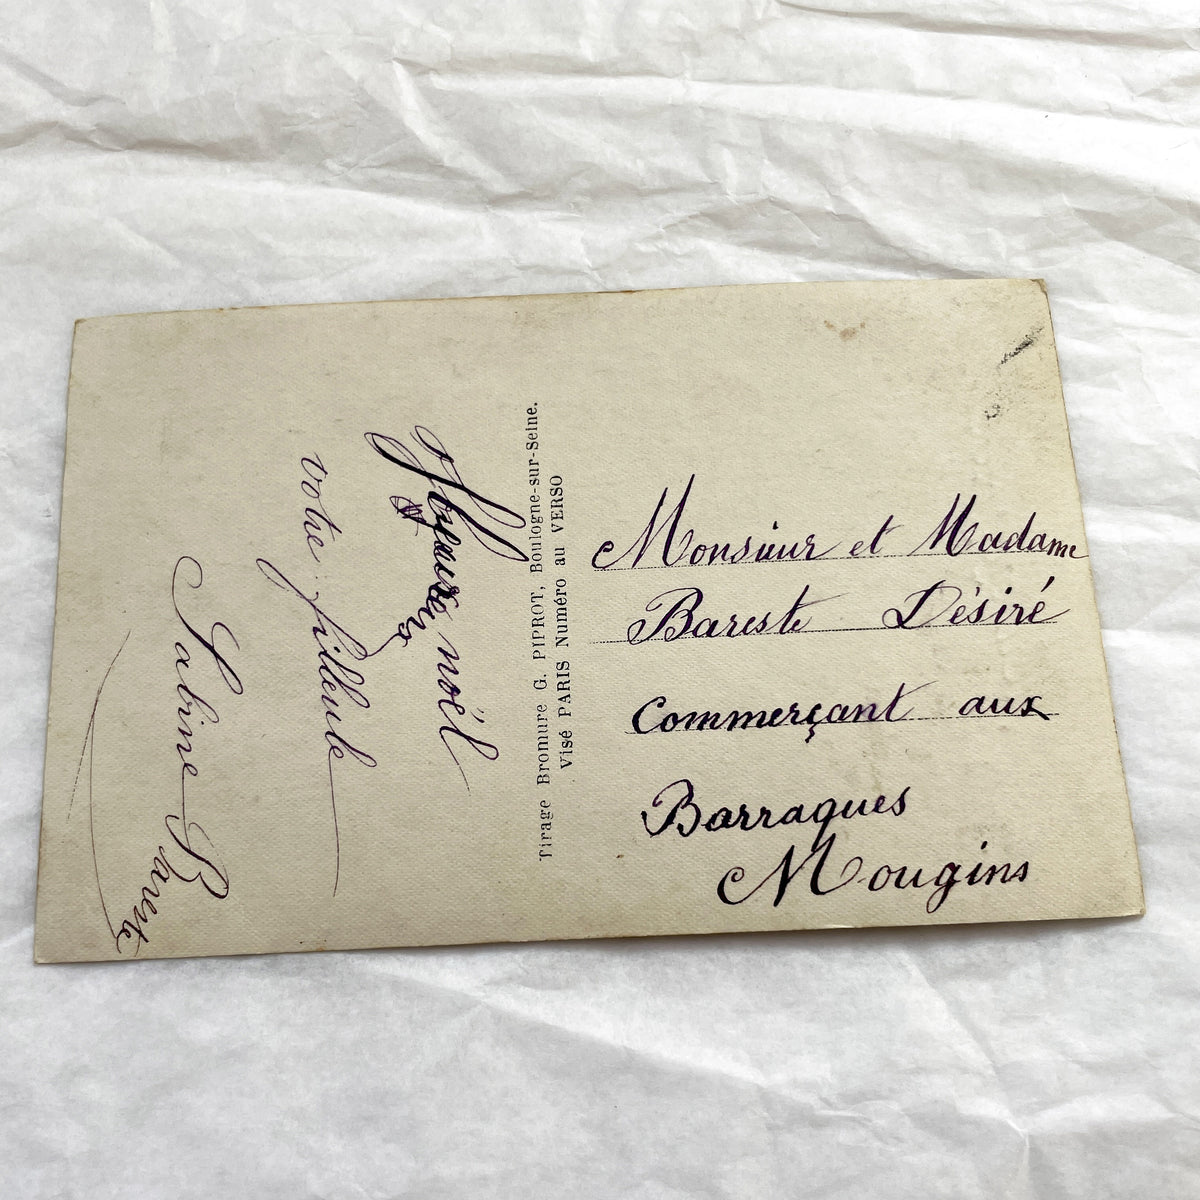 Heureux noël
votre filleule
Sabine Bareste
Tirage Bromure G. PIPROT, Boulogne-sur-Seine.
Visé PARIS Numéro au VERSO
Monsieur et Madame
Bareste Désiré
Commerçant aux
Barraques
Mougins